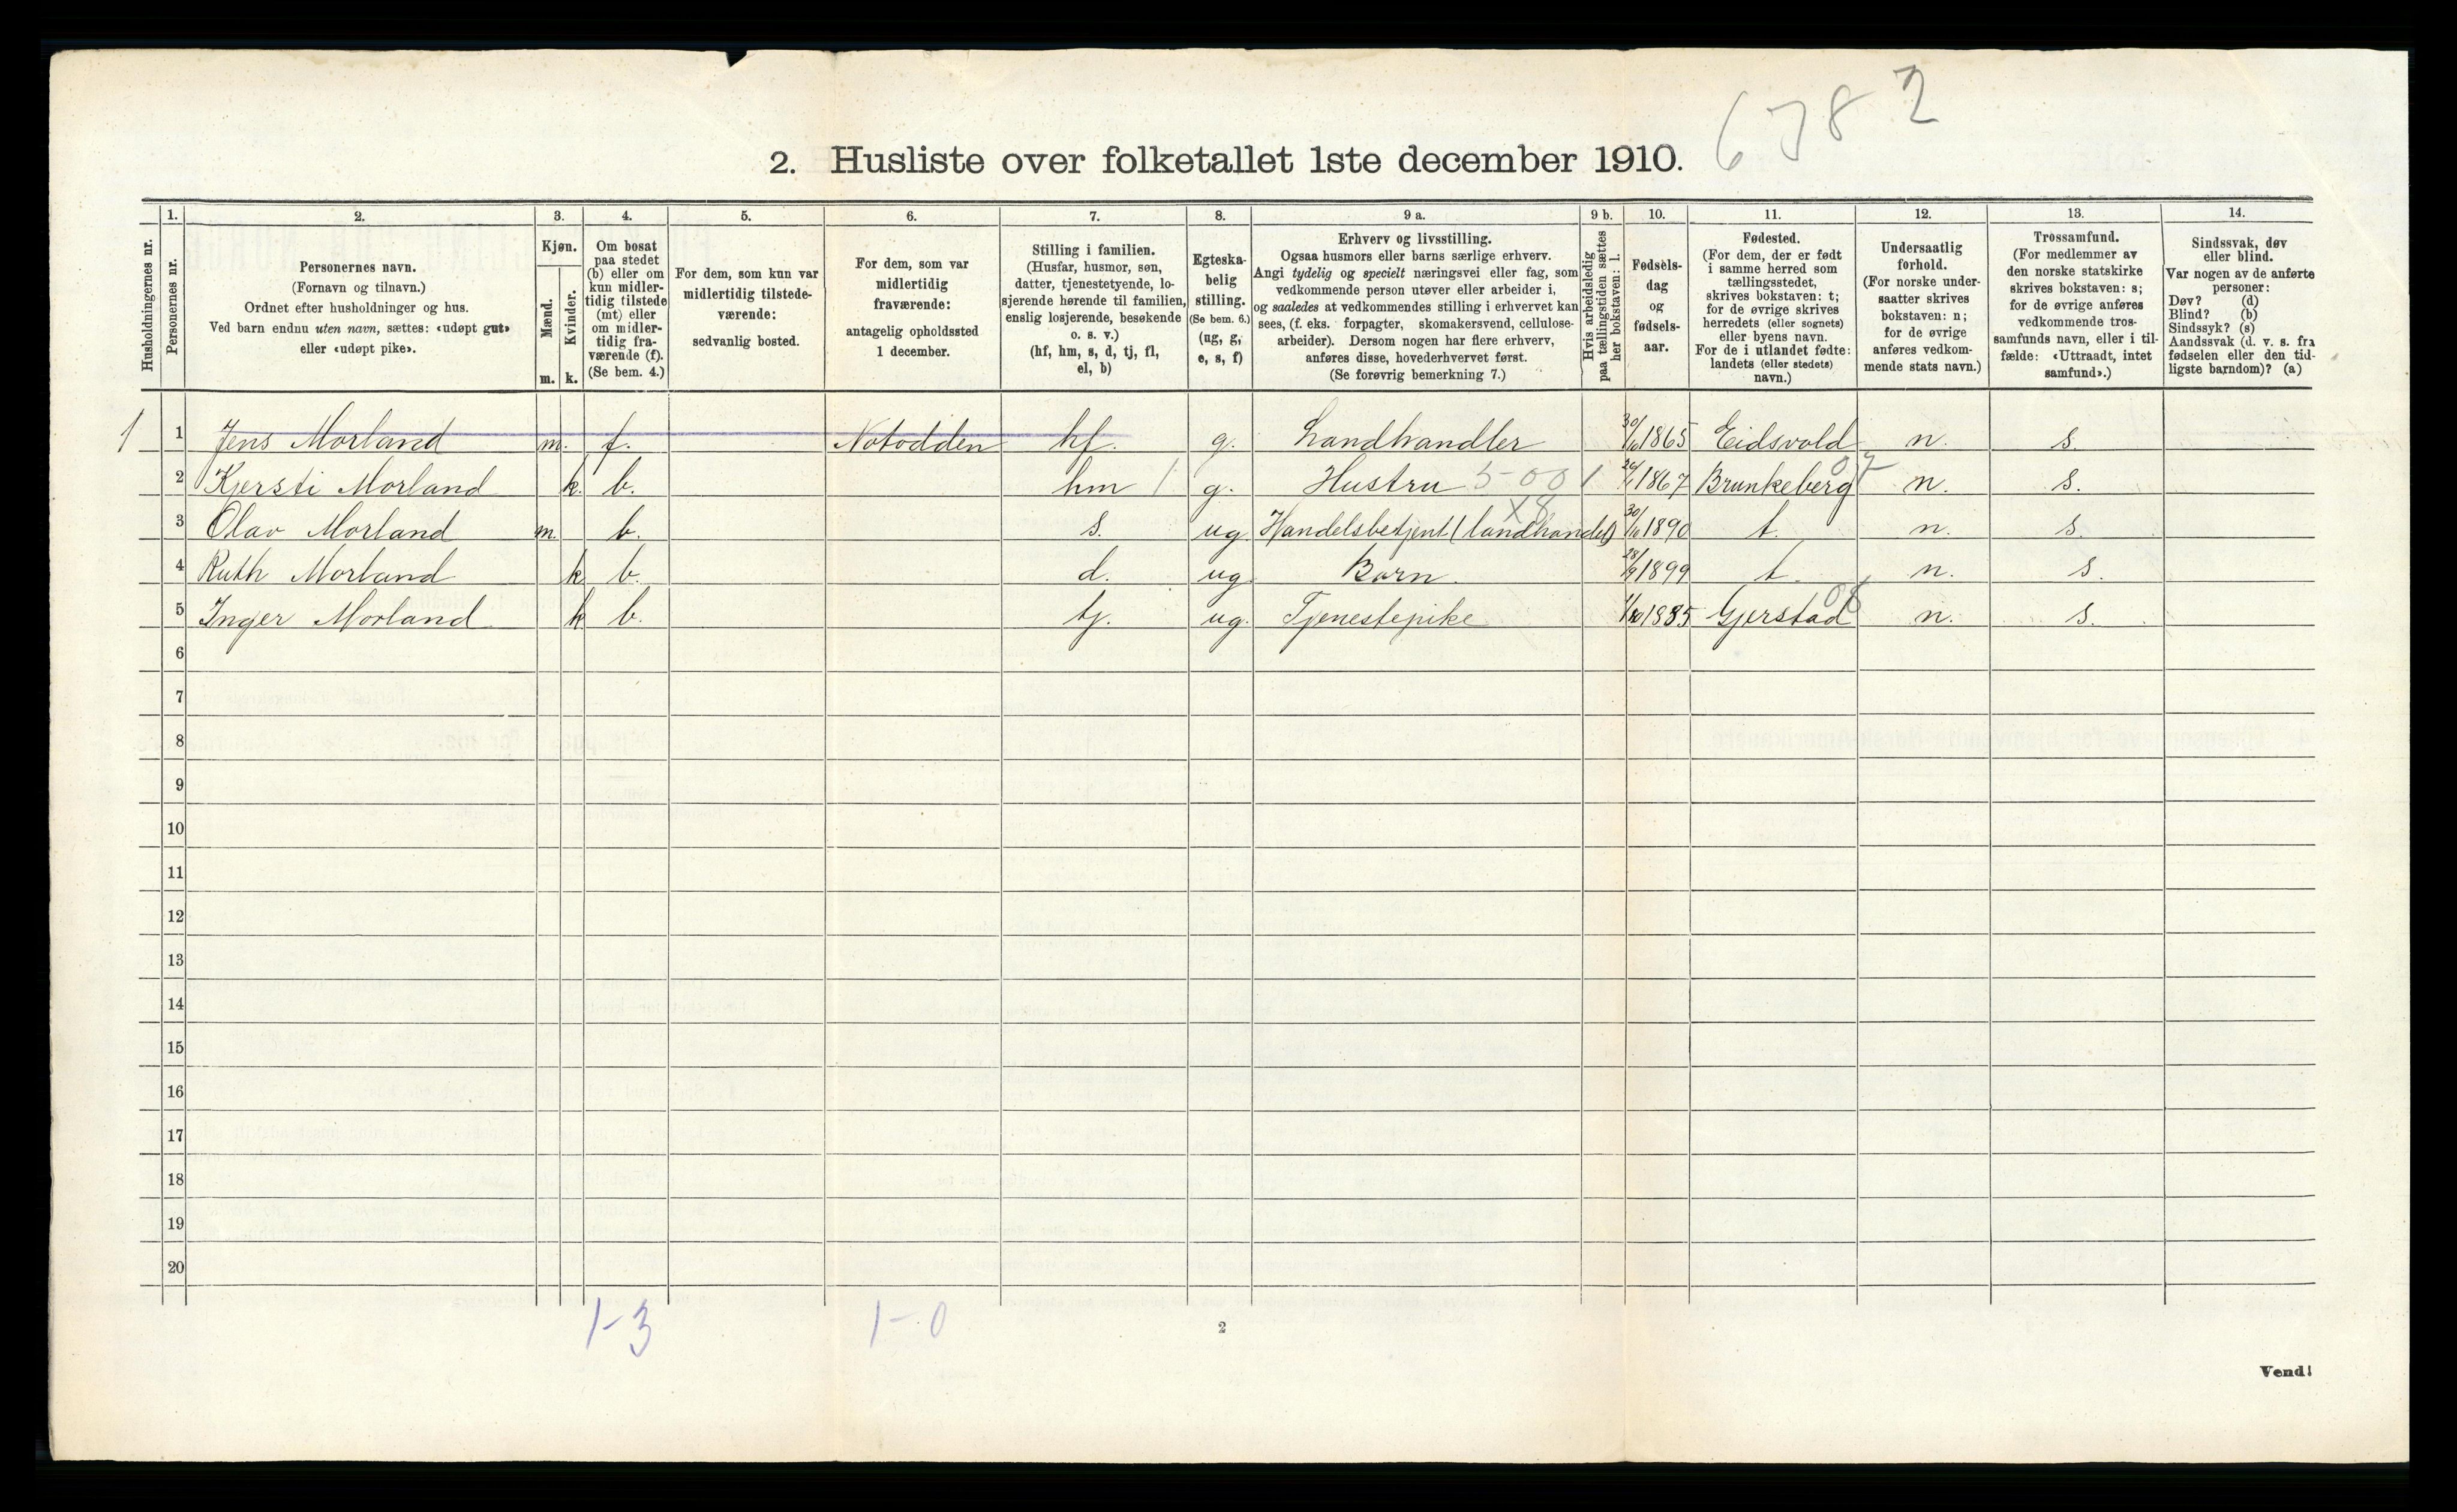 6782
2. Husliste over folketallet 1ste december 1910.
Husholdningernes nr.
1.
Personernes nr.
2.
Personernes navn.
(Fornavn og tilnavn.)
Ordnet efter husholdninger og hus.
Ved barn endnu uten navn, sættes: «udøpt gut»
eller «udøpt pike».
3.
Kjøn.
Mænd.
Kvinder.
m. k.
4.
Om bosat
paa stedet
(b) eller om
kun midler-
tidig tilstede
(mt) eller
om midler-
tidig fra-
værende (f).
(Se bem. 4.)
5.
For dem, som kun var
midlertidig tilstede-
værende:
sedvanlig bosted.
6.
For dem, som var
midlertidig
fraværende:
antagelig opholdssted
1 december.
7.
Stilling i familien.
(Husfar, husmor, søn,
datter, tjenestetyende, lo-
sjerende hørende til familien,
enslig losjerende, besøkende
o. s. v.)
(hf, hm, s, d, tj, fl,
el, b)
8.
Egteska-
belig
stilling.
(Se bem. 6.)
(ug, g,
e, s, f)
9 a.
Erhverv og livsstilling.
Ogsaa husmors eller barns særlige erhverv.
Angi tydelig og specielt næringsvei eller fag, som
vedkommende person utøver eller arbeider i,
og saaledes at vedkommendes stilling i erhvervet kan
sees, (f. eks. forpagter, skomakersvend, cellulose-
arbeider). Dersom nogen har flere erhverv,
anføres disse, hovederhvervet først.
(Se forøvrig bemerkning 7.)
9 b.
Hvis arbeidsledig
paa tællingstiden sættes
her bokstaven: l.
10.
Fødsels-
dag
og
fødsels-
aar.
11.
Fødested.
(For dem, der er født
i samme herred som
tællingsstedet,
skrives bokstaven: t;
for de øvrige skrives
herredets (eller sognets)
eller byens navn.
For de i utlandet fødte:
landets (eller stedets)
navn.)
12.
Undersaatlig
forhold.
(For norske under-
saatter skrives
bokstaven: n;
for de øvrige
anføres vedkom-
mende stats navn.)
13.
Trossamfund.
(For medlemmer av
den norske statskirke
skrives bokstaven: s;
for de øvrige anføres
vedkommende tros-
samfunds navn, eller i til-
fælde: «Uttraadt, intet
samfund».)
14.
Sindssvak, døv
eller blind.
Var nogen av de anførte
personer:
Døv? (d)
Blind? (b)
Sindssyk? (s)
Aandssvak (d. v. s. fra
fødselen eller den tid-
ligste barndom)? (a)
1 1 Jens Morland m. f. Notodden hf. g. Landhandler 1865 Eidsvold n. s.
2 Kjersti Morland k. b. hm 1 g. Hustru 5-00 1 1867 Brunkeberg 07 n. s.
3 Olav Morland m. b. s. ug Handelsbetjent (landhandel) X8 1890 t. n. s.
4 Ruth Morland k b. d. ug Barn. 28/9 1899 t. n. s.
5 Inger Morland k b. tj. ug. Tjenestepike 1885 Gjerstad 08 n. s.
6
7
8
9
10
11
12
13
14
15
16
17
18
19
20
1-3 1-0
2
Vend!